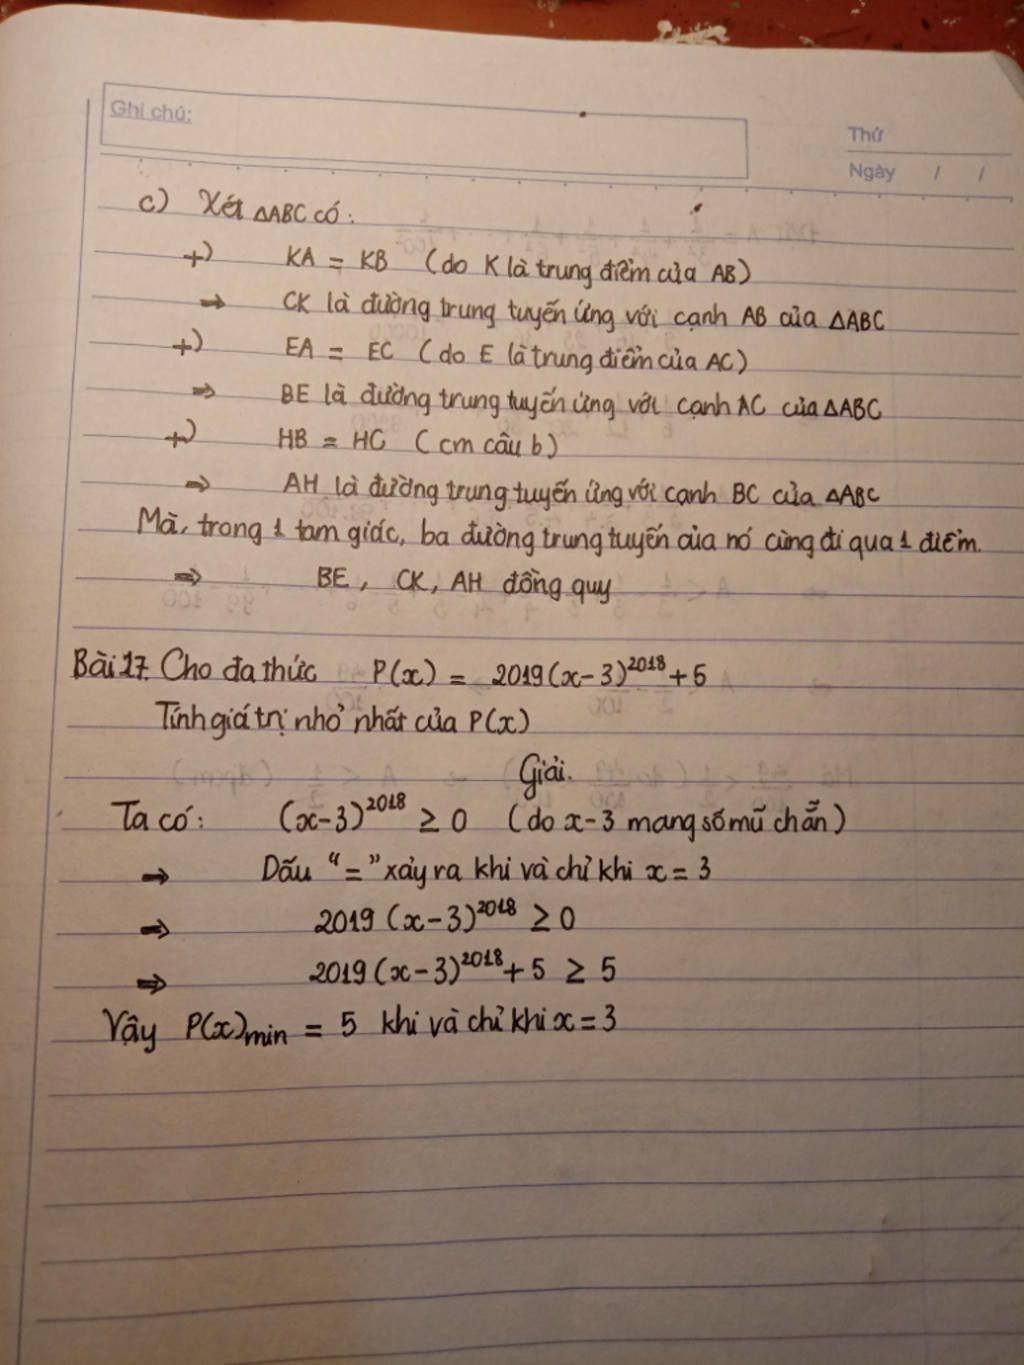 Ghi chú:
Thứ
Ngày / /
c) Xét △ABC có:
+) KA = KB (do K là trung điểm của AB)
⇒ CK là đường trung tuyến ứng với cạnh AB của △ABC
+) EA = EC (do E là trung điểm của AC)
⇒ BE là đường trung tuyến ứng với cạnh AC của △ABC
+) HB = HC (cm câu b)
⇒ AH là đường trung tuyến ứng với cạnh BC của △ABC
Mà, trong 1 tam giác, ba đường trung tuyến của nó cùng đi qua 1 điểm.
⇒ BE, CK, AH đồng quy
Bài 17. Cho đa thức P(x) = 2019(x-3)²⁰¹⁸ + 5
Tính giá trị nhỏ nhất của P(x)
Giải.
Ta có: (x-3)²⁰¹⁸ ≥ 0 (do x-3 mang số mũ chẵn)
⇒ Dấu "=" xảy ra khi và chỉ khi x = 3
⇒ 2019(x-3)²⁰¹⁸ ≥ 0
⇒ 2019(x-3)²⁰¹⁸ + 5 ≥ 5
Vậy P(x)min = 5 khi và chỉ khi x = 3